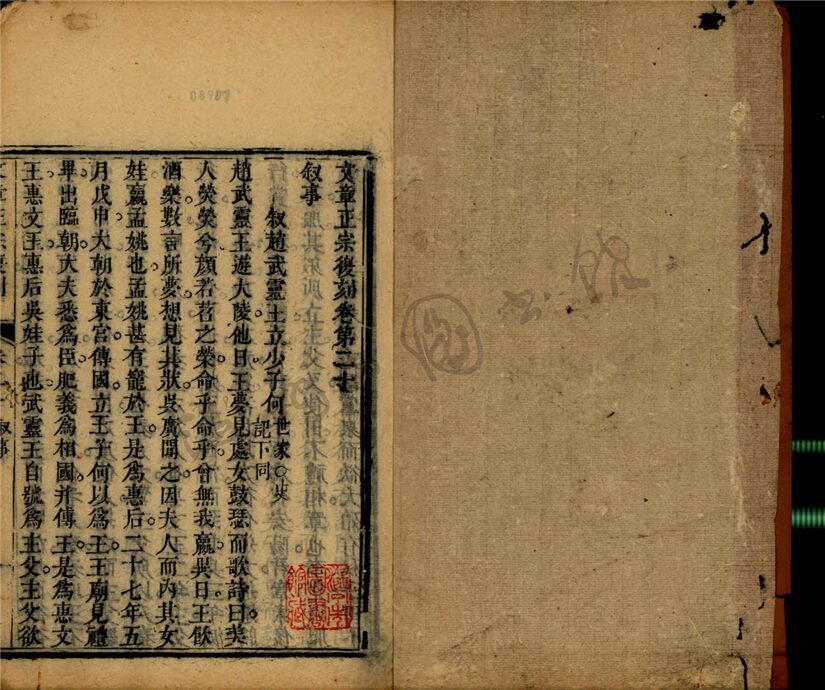 文章正宗復刻卷第二十
叙事
叙趙武靈王立少子何世家○史記下同
趙武靈王遊大陵他日王夢見處女鼓瑟而歌詩曰美
人熒熒兮顏若苕之榮命乎命乎曾無我嬴異日王飲
酒樂數言所夢想見其狀吳廣聞之因夫人而內其女
娃嬴孟姚也孟姚甚有寵於王是爲惠后二十七年五
月戊申大朝於東宮傳國立王子何以爲王王廟見禮
畢出臨朝大夫悉爲臣肥義爲相國并傳王是爲惠文
王惠文王惠后吳娃子也武靈王自號爲主父主父欲
08907